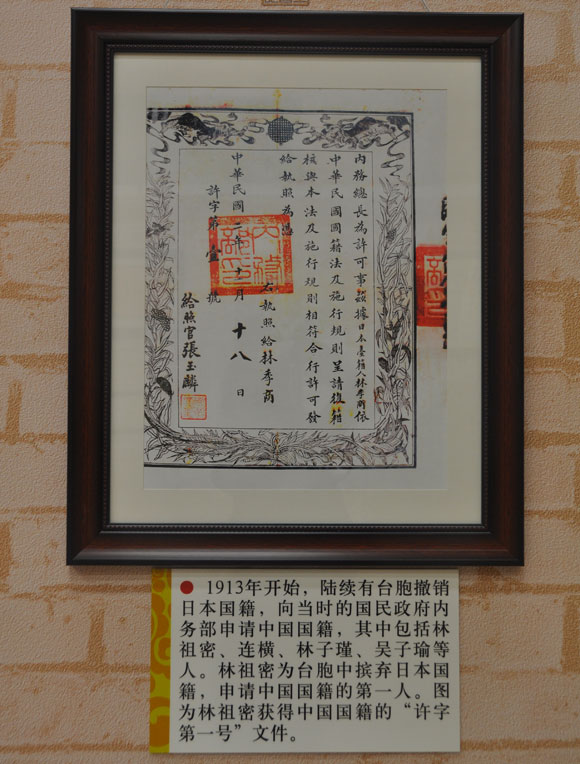 内務總長為許可事茲據日本臺籍人林季商依
中華民國國籍法及施行規則呈請復籍
核與本法及施行規則相符合行許可發
給執照為憑
右執照給林季商
中華民國二年十一月十八日
許字第壹號
給照官張玉麟
● 1913年开始，陆续有台胞撤销
日本国籍，向当时的国民政府内
务部申请中国国籍，其中包括林
祖密、连横、林子瑾、吴子瑜等
人。林祖密为台胞中摈弃日本国
籍，申请中国国籍的第一人。图
为林祖密获得中国国籍的“许字
第一号”文件。